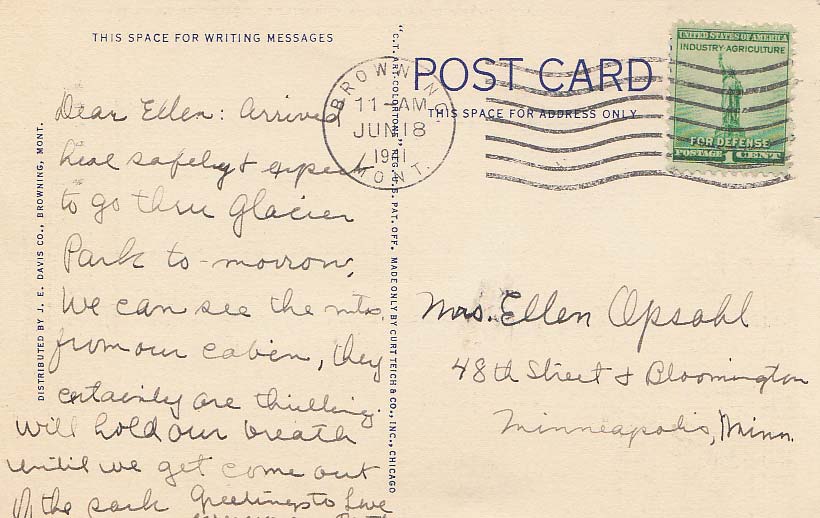 THIS SPACE FOR WRITING MESSAGES
Dear Ellen: Arrived
heae safely & expect
to go thru Glacier
Park to-morrow,
We can see the mts,
from our cabien, they
certainly are thrilling.
Will hold our breath
until we get come out
of the park Greetings to
DISTRIBUTED BY J. E. DAVIS CO., BROWNING, MONT.
"C.T. ART-COLORTONE" REG. U.S. PAT. OFF. MADE ONLY BY CURT TEICH & CO., INC., CHICAGO
BROWNING
11-AM
JUN 18
1941
MONT.
POST CARD
THIS SPACE FOR ADDRESS ONLY
UNITED STATES OF AMERICA
INDUSTRY·AGRICULTURE
FOR DEFENSE
POSTAGE 1 CENT
Mrs. Ellen Opsahl
48th Street & Bloomington
Minneapolis, Minn.